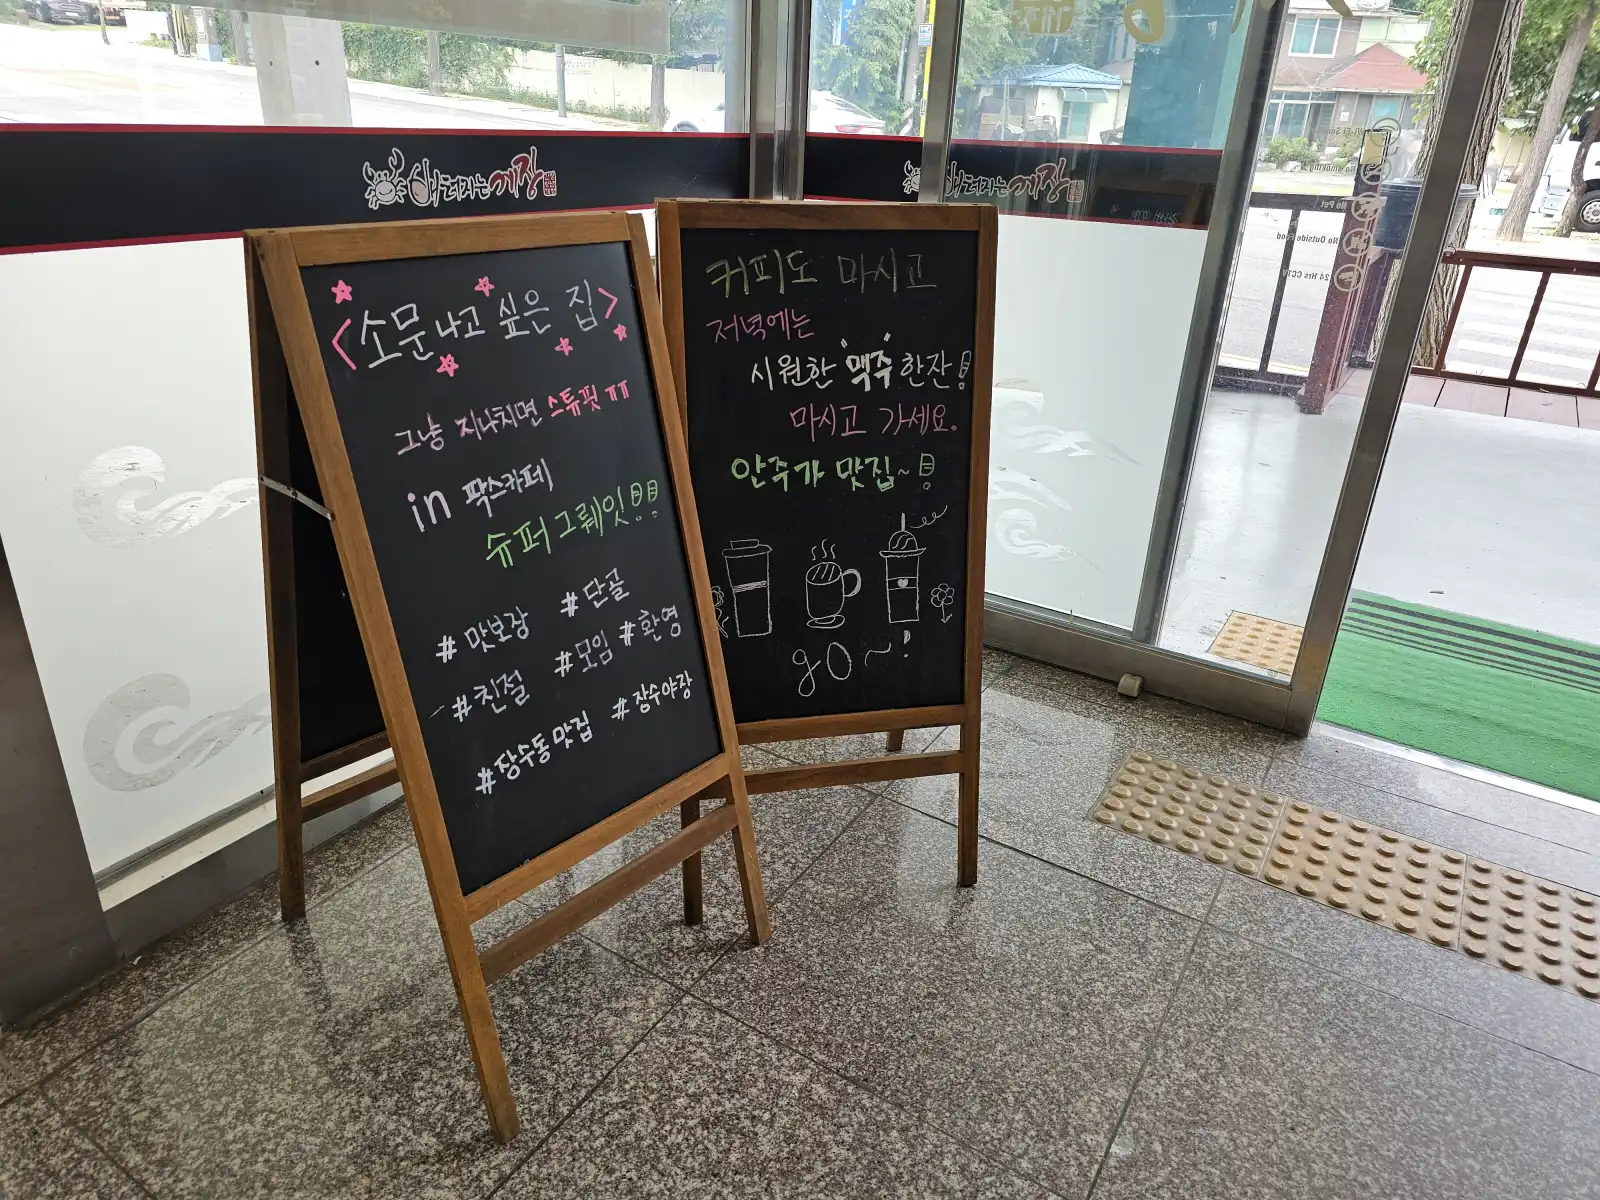 애터지는게장
<소문나고 싶은 집>
그냥 지나치면 스튜핏 ㅠㅠ
in 팍스카페
슈퍼그뤠잇!!
#맛보장 #단골
#친절 #모임 #환영
#장수동맛집 #장수야장
커피도 마시고
저녁에는
시원한 "맥주" 한잔!
마시고 가세요.
안주가 맛집~!
go~!
No Pet
No Outside Food
24 Hrs CCTV